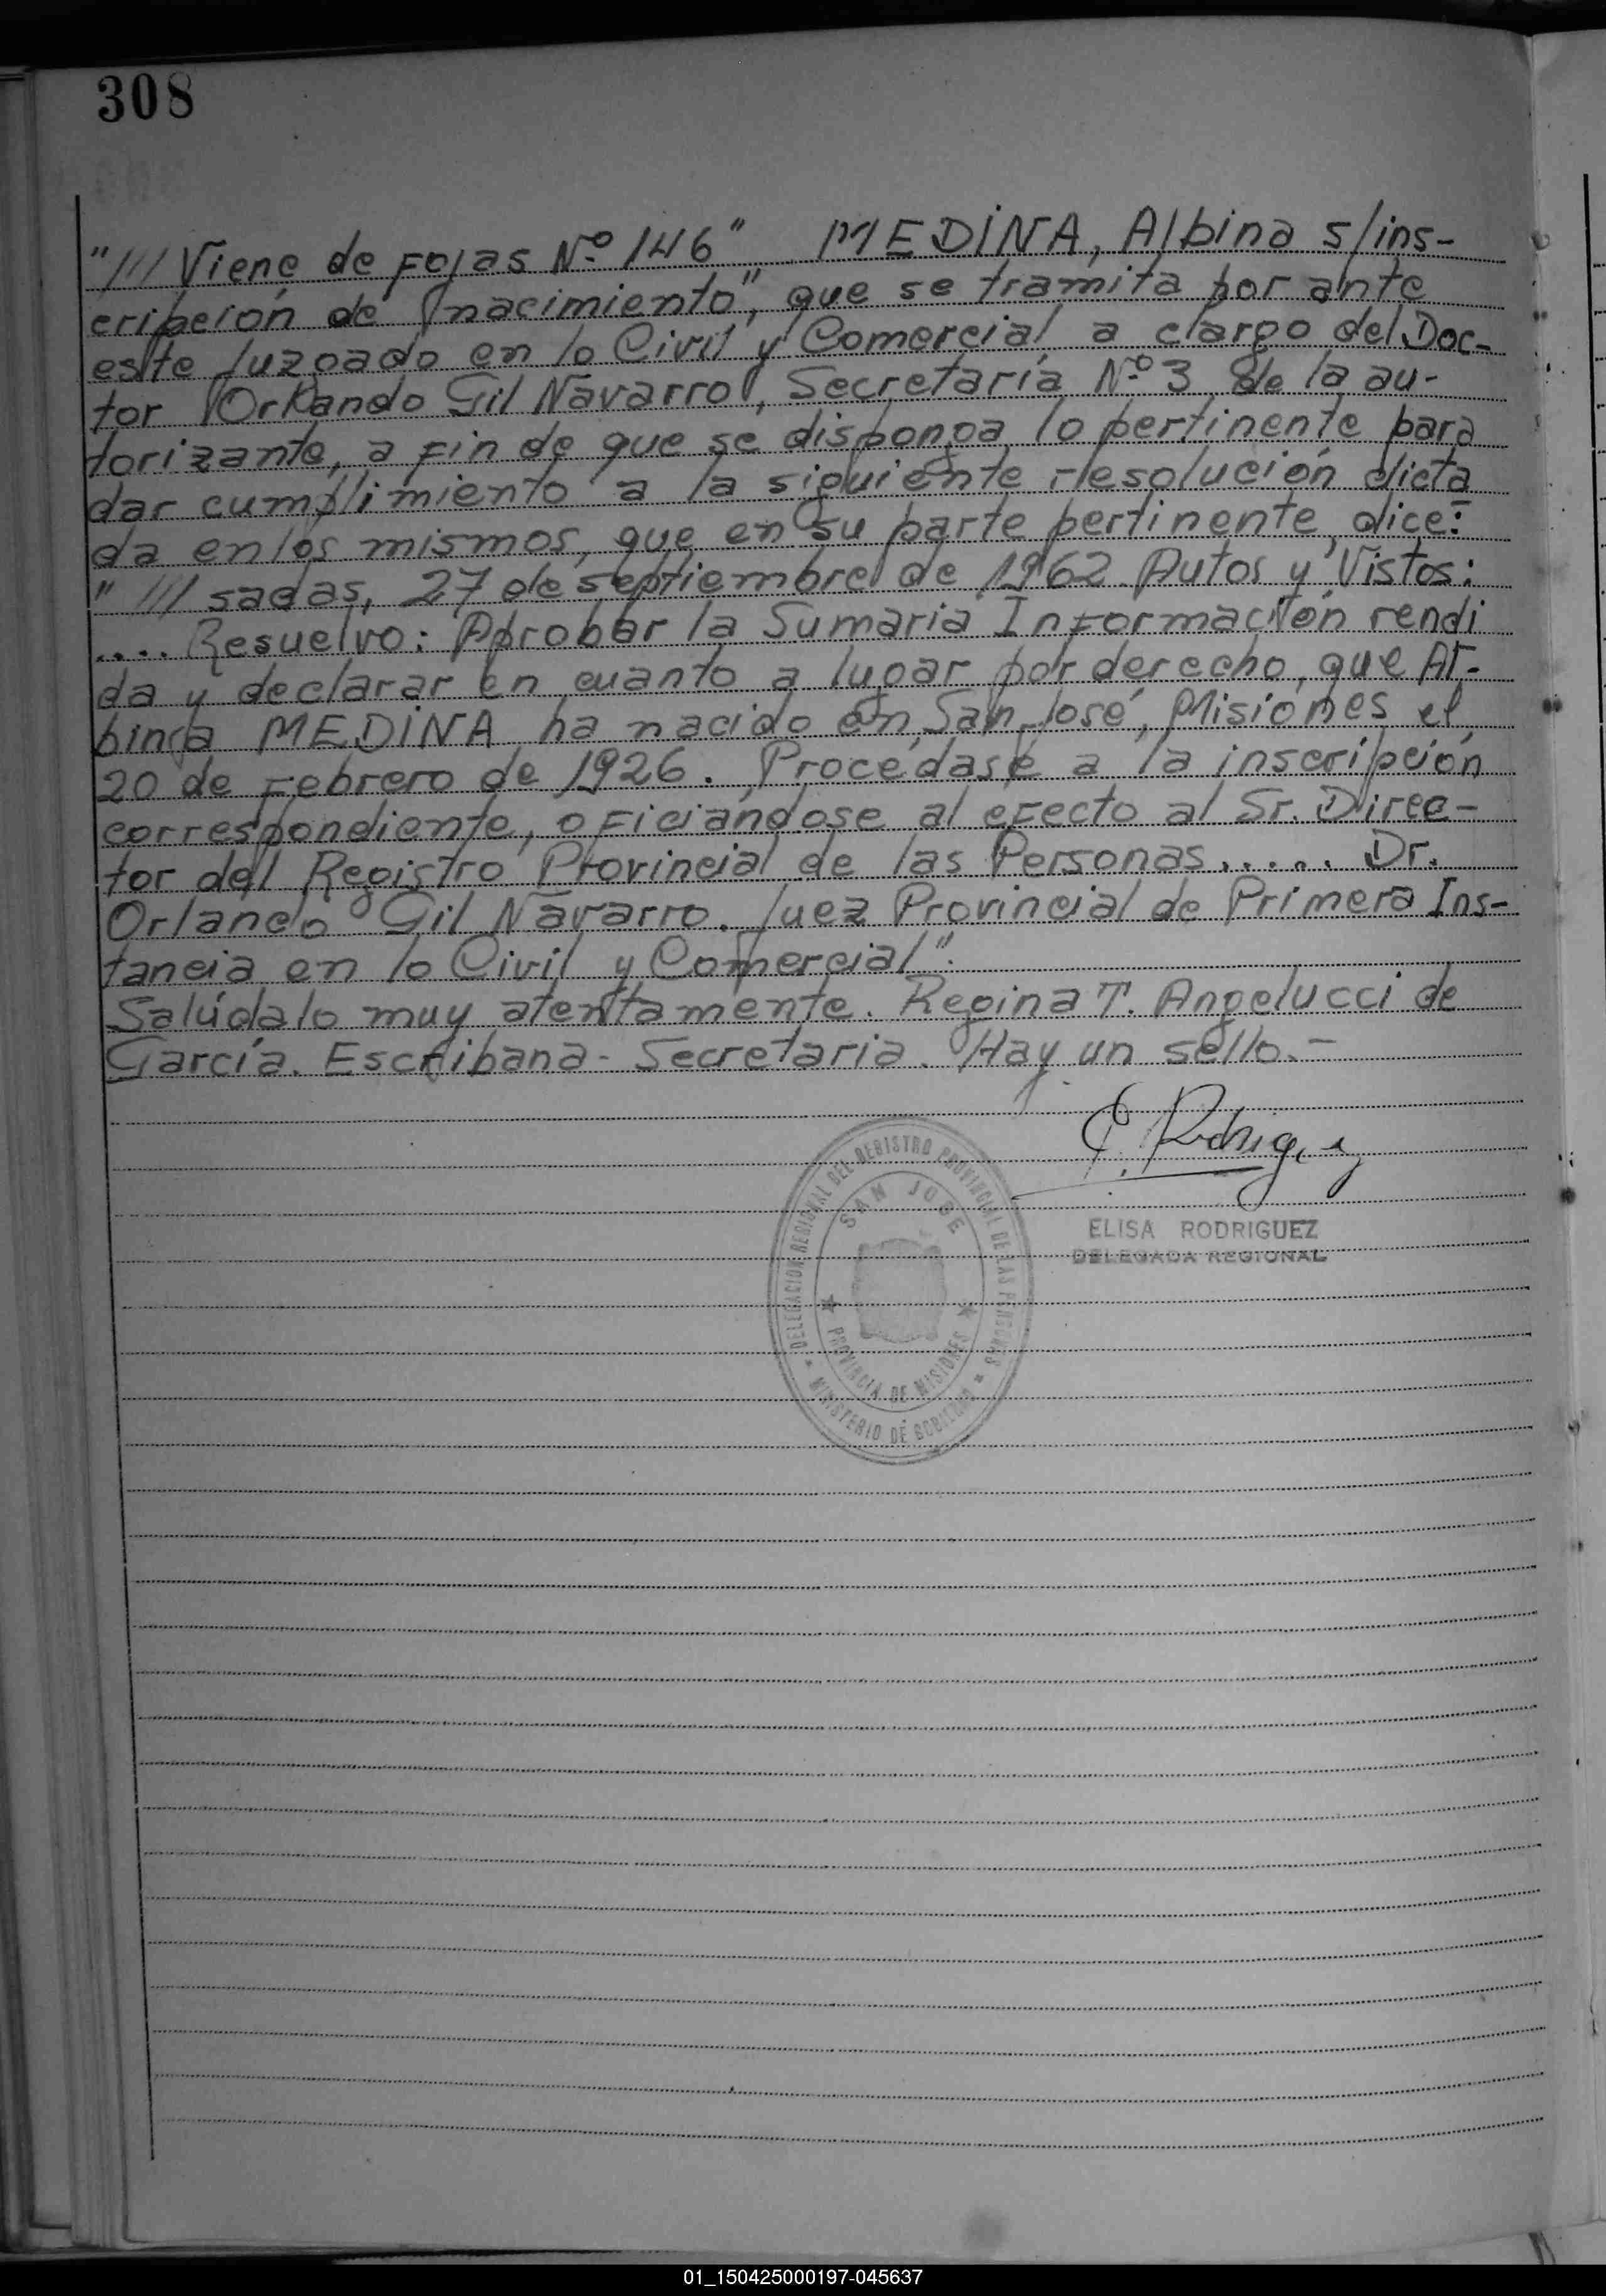 308
"/// Viene de Fojas Nº 146" MEDINA, Albina s/ins-
cripción de nacimiento", que se tramita por ante
este Juzgado en lo Civil y Comercial a cargo del Doc-
tor Orlando Gil Navarro, Secretaría Nº 3 de la au-
torizante, a fin de que se disponga lo pertinente para
dar cumplimiento a la siguiente resolución dicta
da en los mismos, que en su parte pertinente dice:
"/// sadas, 27 de septiembre de 1962. Autos y Vistos:
.... Resuelvo: Aprobar la Sumaria Información rendi
da y declarar en cuanto a lugar por derecho, que Al-
bina MEDINA ha nacido en San José, Misiones el
20 de Febrero de 1926. Procédase a la inscripción
correspondiente, oficiándose al efecto al Sr. Direc-
tor del Registro Provincial de las Personas..... Dr.
Orlando Gil Navarro. Juez Provincial de Primera Ins-
tancia en lo Civil y Comercial".
Salúdalo muy atentamente. Regina T. Angelucci de
García. Escribana - Secretaria. Hay un sello.-
E. Rodriguez
ELISA RODRIGUEZ
DELEGADA REGIONAL
DELEGACION REGIONAL DEL REGISTRO PROVINCIAL DE LAS PERSONAS
SAN JOSE
PROVINCIA DE MISIONES
MINISTERIO DE GOBIERNO
01_150425000197-045637